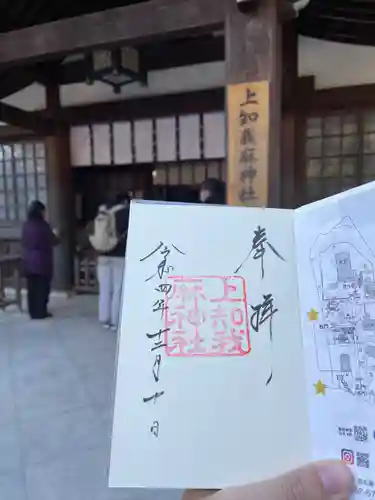 上知我麻神社
奉拝
上知我
麻神社
令和四年十二月十日